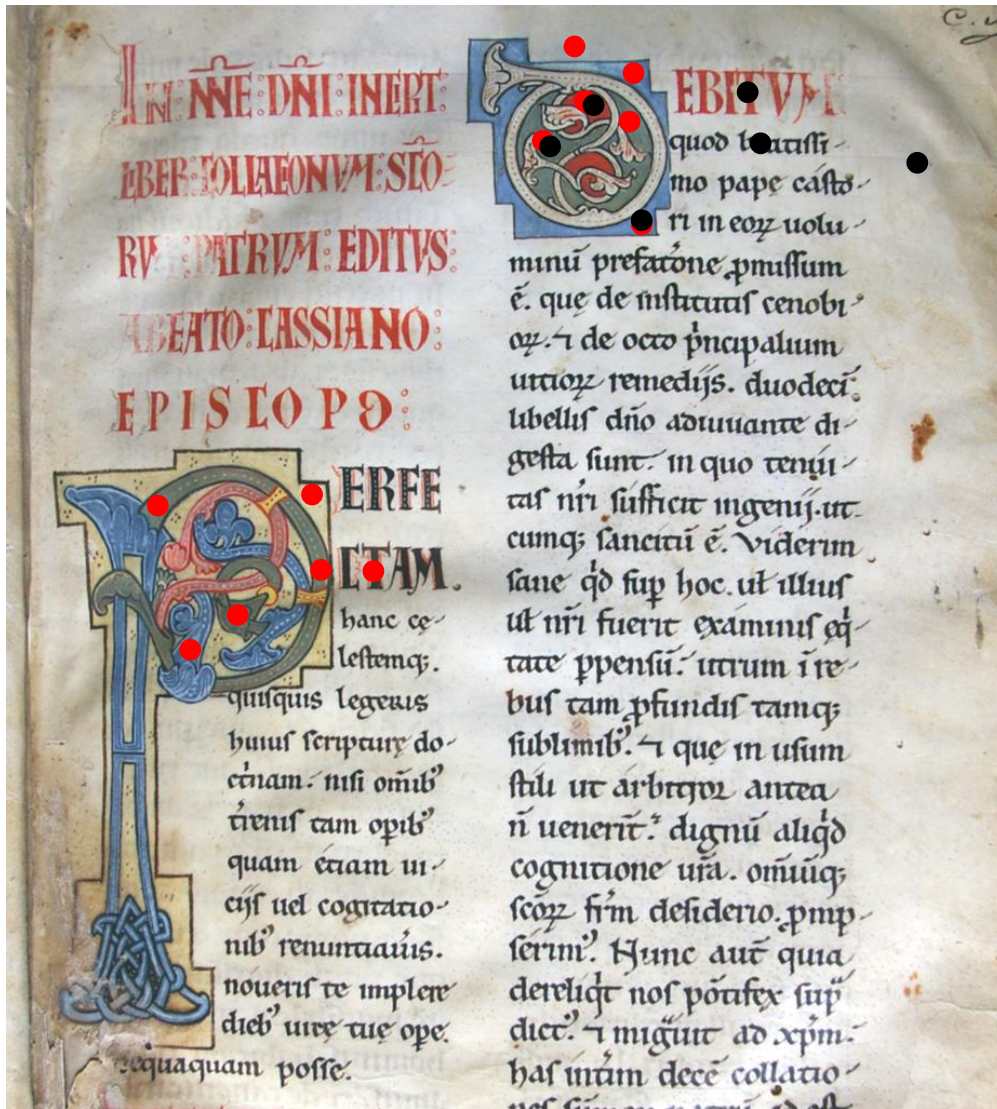 IN NŌE : DN̄I : INCIPIT :
LIBER : COLLATIONVM : SC̄O
RVM : PATRVM : EDITVS :
A BEATO : CASSIANO :
EPISCOPO :
PERFE
CTAM .
hanc cę-
lestemq;.
quisquis legeris
huius scripturę do-
ct̓nam. nisi om̄ib᾽
t̓renis tam opib᾽
quam etiam ui-
cijs uel cogitatio-
nib᾽ renuntiaūis.
noueris te implere
dieb᾽ uitę tuę ope.
nequaquam posse.
DEBITVM
quod beatissi-
mo papę casto-
ri in eoꝝ uolu-
minū prefat̓one ꝓmissum
ē. quę de institutis cenobi-
oꝝ. ⁊ de octo p̓ncipalium
uitioꝝ remedijs. duodeci
libellis dn̄o adiuuante di-
gesta sunt. in quo tenui-
tas nr̄i sufficit ingenij. ut-
cumq; sancitū ē. Viderim
sane qd̓ suꝑ hoc. uł illius
uł nr̄i fuerit examinis eq̓
tate ꝑpensū. utrum ī re-
bus tam ꝓfundis tamq;
sublimib᾽. ⁊ que in usum
stili ut arbitror antea
n̄ uenerīt. dignū aliq̓d
cognitione ur̄a. om̄iūq;
sc̄oꝝ fr̄m desiderio. ꝓmp-
serim᾽. Nunc aut̄ quia
dereliq̓t nos pōtifex sup̄
dict᾽. ⁊ mig̓uit ad xp̄m.
has int̓im decē collatio-